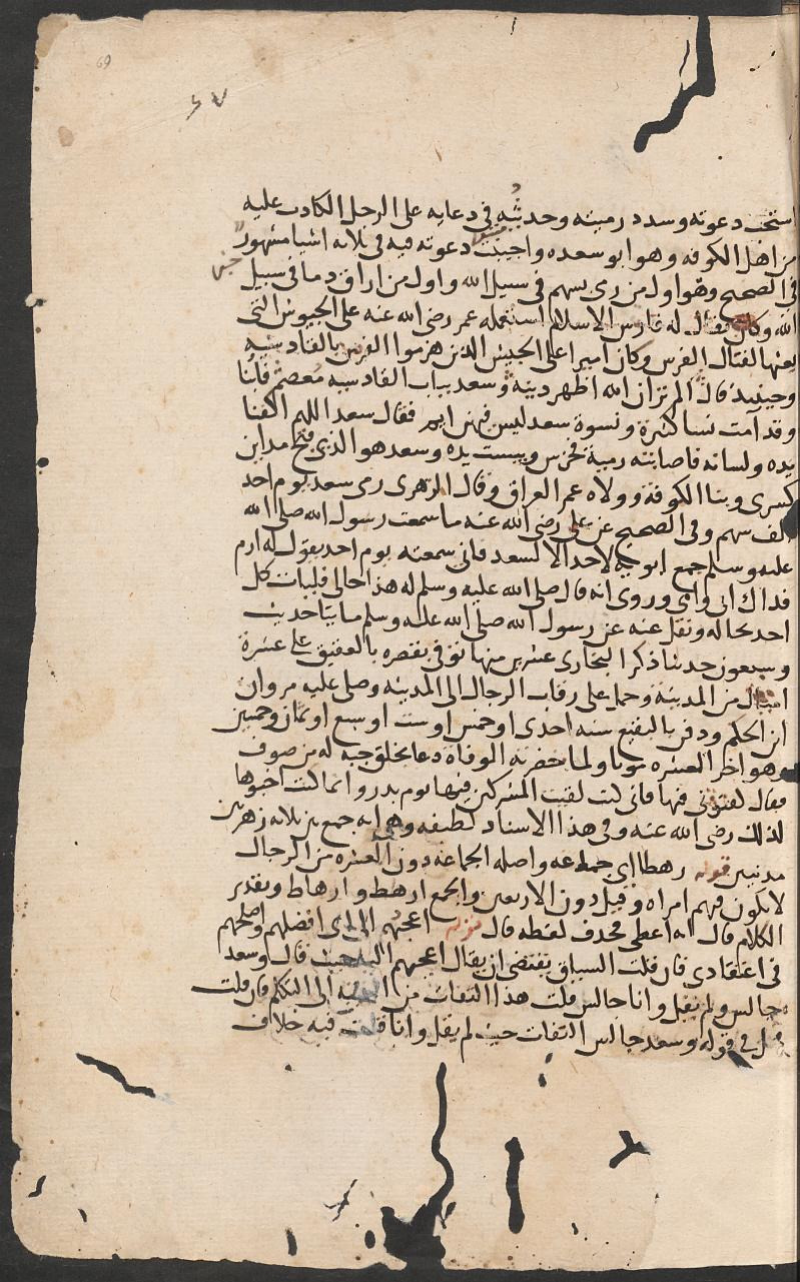 69
٦٧
استجب دعوته وسدد رميته وحديثه في دعايه على الرجل الكاذب عليه
من اهل الكوفه وهو ابو سعده واجيبت دعوته فيه في ثلاثه اشيا مشهور
في الصحيح وهو اول من رمى بسهم في سبيل الله واول من اراق دما في سبيل
الله وكان يقال له فارس الاسلام استعمله عمر رضى الله عنه على الجيوش التى
بعثها لقتال الفرس وكان اميرا على الجيش الذين هزموا الفرس بالقادسيه
وحينيذ قال الم تر ان الله اظهر دينه وسعد بباب القادسيه معصم فابنا
وقد آمت نسا كثيرة ونسوة سعد ليس فيهن ايم فقال سعد اللهم اكفنا
يده ولسانه فاصابته رمية فخرس ويبست يده وسعد هو الذى فتح مداين
كسرى وبنا الكوفة وولاه عمر العراق وقال الزهرى رمى سعد يوم احد
الف سهم وفى الصحيح عن على رضى الله عنه ما سمعت رسول الله صلى الله
عليه وسلم جمع ابويه لاحد الا لسعد فانى سمعته يوم احد يقول له ارم
فداك ابى وامى وروى انه قال صلى الله عليه وسلم له هذا خالى فليات كل
احد بخاله ونقل عنه عن رسول الله صلى الله عليه وسلم مايتا حديث
وسبعون حديثا ذكر البخارى عشرين منها توفى بقصره بالعقيق على عشرة
اميال من المدينة وحمل على رقاب الرجال الى المدينه وصلى عليه مروان
ابن الحكم ودفن بالبقيع سنه احدى او خمس او ست او سبع او ثمان وخمسين
وهو اخر العشره موتا ولما حضرته الوفاه دعا بخلق جبه له من صوف
فقال كفنونى فيها فانى كنت لقيت المشركين فيها يوم بدر وانما كنت اخبوها
لذلك رضى الله عنه وفى هذا الاسناد لطيفه وهى انه جمع بين ثلاثه زهريين
مدنيين قوله رهطا اى جماعه واصله الجماعه دون العشره من الرجال
لا يكون فيهم امراه وقيل دون الاربعين والجمع ارهط وارهاط وتقدير
الكلام قال انه اعطى فحذف لفظه قال قوله اعجبهم الى اى افضلهم واصلحهم
فى اعتقادى فان قلت السياق يقتضى ان يقال اعجبهم اليه حيث قال وسعد
جالس ولم يقل وانا جالس قلت هذا التفات من الغيبه الى التكلم فان قلت
هل فى قوله وسعد جالس التفات حيث لم يقل وانا قلت فيه خلاف